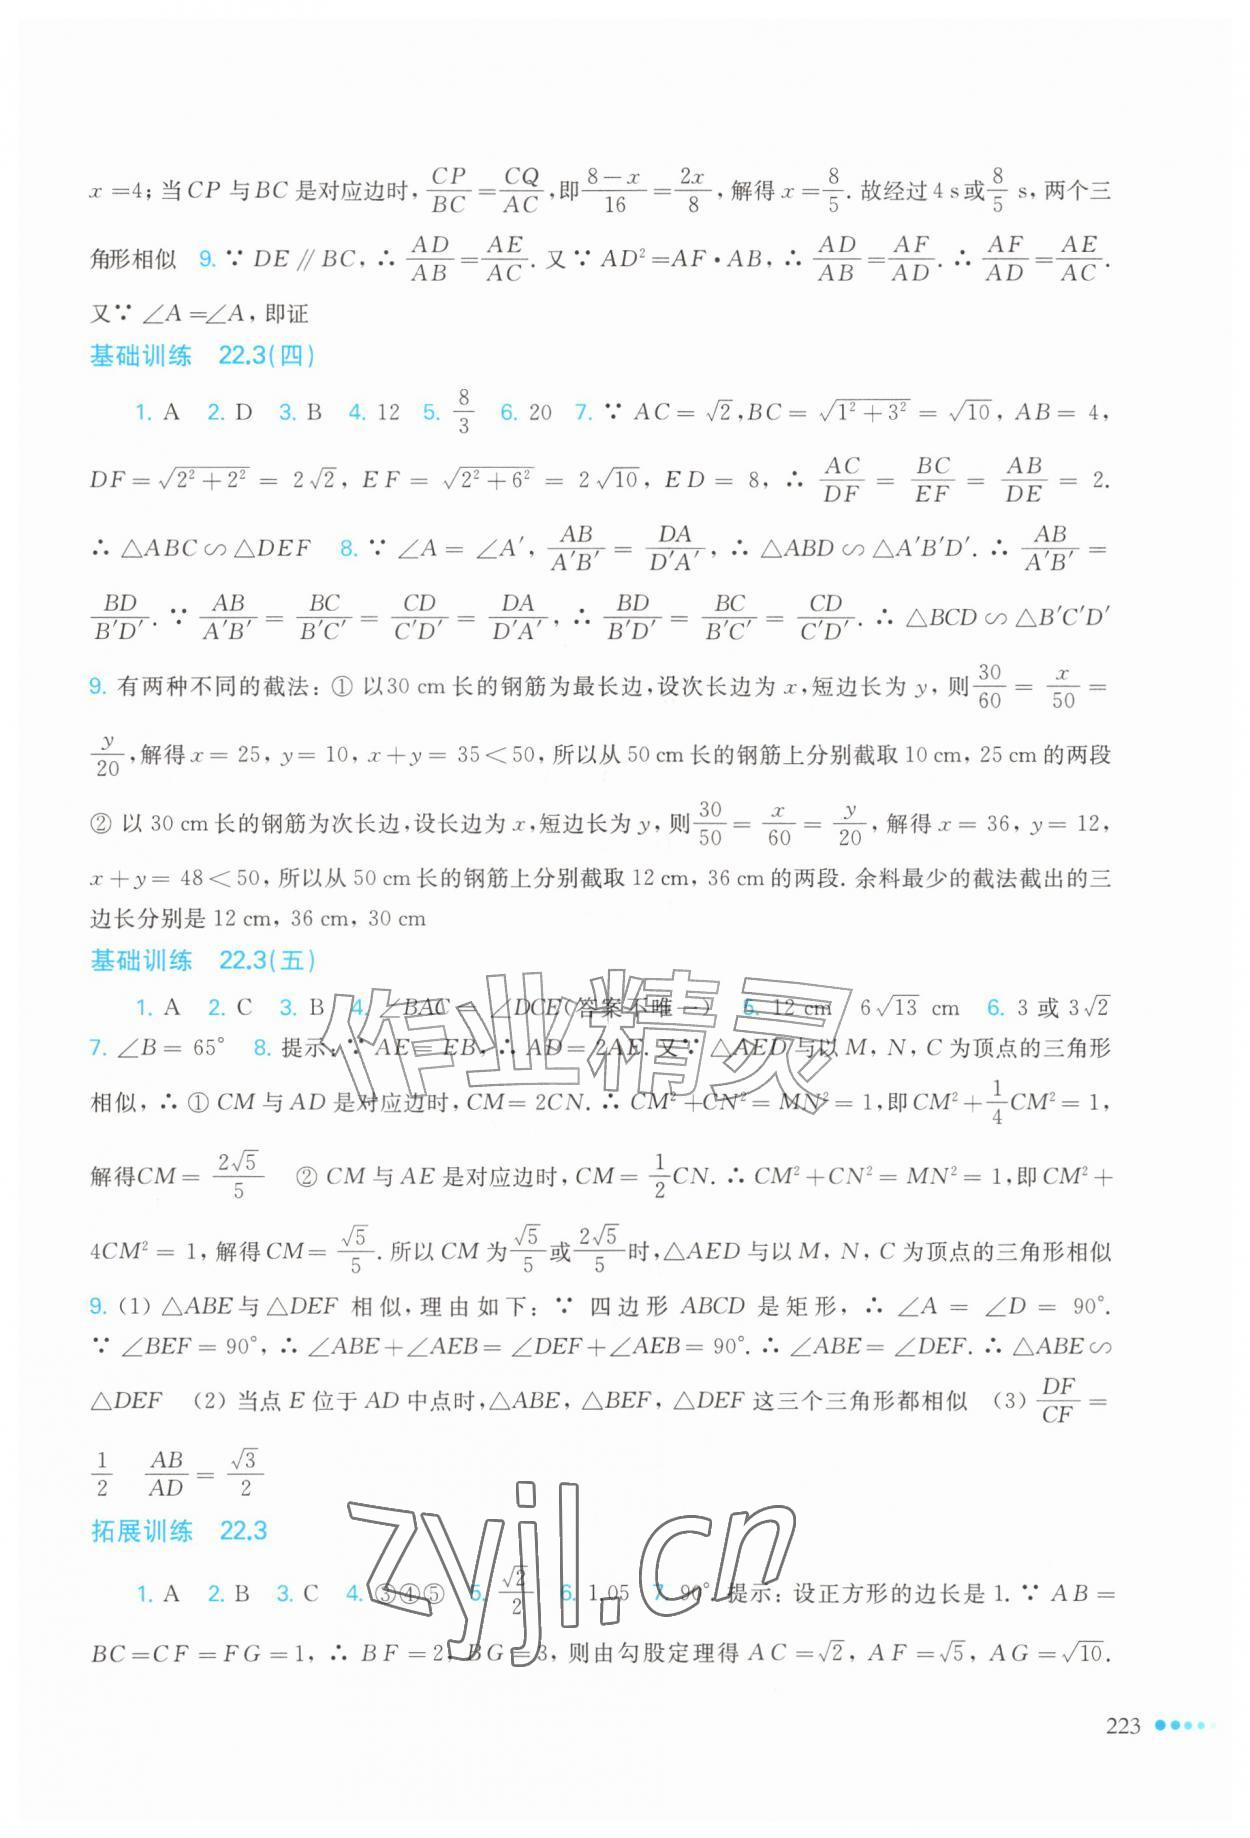 x=4;当CP与BC是对应边时,CP/BC=CQ/AC,即(8-x)/16=2x/8,解得x=8/5.故经过4 s或8/5 s,两个三
角形相似 9. ∵ DE∥BC,∴ AD/AB=AE/AC. 又∵ AD²=AF·AB,∴ AD/AB=AF/AD. ∴ AF/AD=AE/AC.
又∵ ∠A=∠A,即证
基础训练 22.3(四)
1. A 2. D 3. B 4. 12 5. 8/3 6. 20 7. ∵ AC=√2,BC=√(1²+3²)=√10, AB=4,
DF=√(2²+2²)=2√2, EF=√(2²+6²)=2√10, ED=8, ∴ AC/DF=BC/EF=AB/DE=2.
∴ △ABC∽△DEF 8. ∵ ∠A=∠A′, AB/A′B′=DA/D′A′, ∴ △ABD∽△A′B′D′. ∴ AB/A′B′=
BD/B′D′. ∵ AB/A′B′=BC/B′C′=CD/C′D′=DA/D′A′, ∴ BD/B′D′=BC/B′C′=CD/C′D′. ∴ △BCD∽△B′C′D′
9. 有两种不同的截法:① 以30 cm长的钢筋为最长边,设次长边为x,短边长为y,则30/60=x/50=
y/20,解得x=25, y=10, x+y=35<50,所以从50 cm长的钢筋上分别截取10 cm, 25 cm的两段
② 以30 cm长的钢筋为次长边,设长边为x,短边长为y,则30/50=x/60=y/20,解得x=36, y=12,
x+y=48<50,所以从50 cm长的钢筋上分别截取12 cm, 36 cm的两段. 余料最少的截法截出的三
边长分别是12 cm, 36 cm, 30 cm
基础训练 22.3(五)
1. A 2. C 3. B 4. ∠BAC=∠DCE(答案不唯一) 5. 12 cm 6√13 cm 6. 3或3√2
7. ∠B=65° 8. 提示:∵ AE=EB,∴ AD=2AE. 又∵ △AED与以M, N, C为顶点的三角形
相似,∴ ① CM与AD是对应边时,CM=2CN. ∴ CM²+CN²=MN²=1,即CM²+1/4CM²=1,
解得CM=2√5/5 ② CM与AE是对应边时,CM=1/2CN. ∴ CM²+CN²=MN²=1,即CM²+
4CM²=1,解得CM=√5/5. 所以CM为√5/5或2√5/5时,△AED与以M, N, C为顶点的三角形相似
9. (1) △ABE与△DEF相似,理由如下:∵ 四边形ABCD是矩形,∴ ∠A=∠D=90°.
∵ ∠BEF=90°,∴ ∠ABE+∠AEB=∠DEF+∠AEB=90°. ∴ ∠ABE=∠DEF. ∴ △ABE∽
△DEF (2) 当点E位于AD中点时,△ABE, △BEF, △DEF这三个三角形都相似 (3) DF/CF=
1/2 AB/AD=√3/2
拓展训练 22.3
1. A 2. B 3. C 4. ③④⑤ 5. √2/2 6. 1.05 7. 90°. 提示:设正方形的边长是1. ∵ AB=
BC=CF=FG=1, ∴ BF=2, BG=3, 则由勾股定理得AC=√2, AF=√5, AG=√10.
223
作业精灵
zyjl.cn